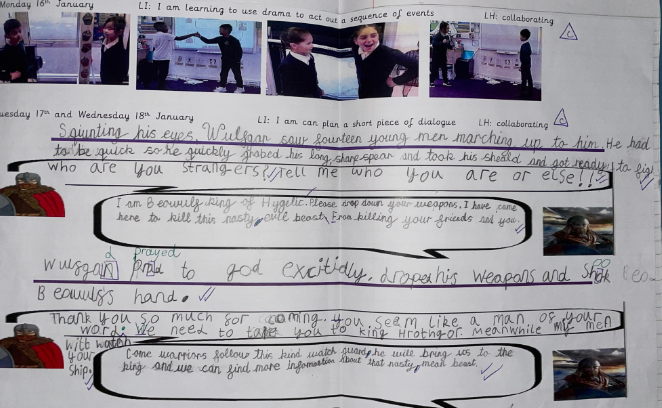 Monday 16th January LI: I am learning to use drama to act out a sequence of events LH: collaborating
uesday 17th and Wednesday 18th January LI: I can plan a short piece of dialogue LH: collaborating
Squinting his eyes, Wulfgan saw fourteen young men marching up to him. He had
to be quick so he quickly grabed his long, sharp spear and took his sheild and got ready to figh
who are you strangers? Tell me who you are or else!!
I am Beowulf king of Hygelic. Please drop down your weapons. I have come
here to kill this nasty, evile beast. From killing your friends and you.
prayed
Wulfgan to god excitidly, droped his weapons and
Beowulfs hand.
Thank you so much for coming. You seem like a man of your
word. We need to take you to king Hrothgor. Meanwhile my men
will watch
your
ship.
Come warriors follow this kind watch guard, he will bring us to the
king and we can find more information about that nasty, mean beast.